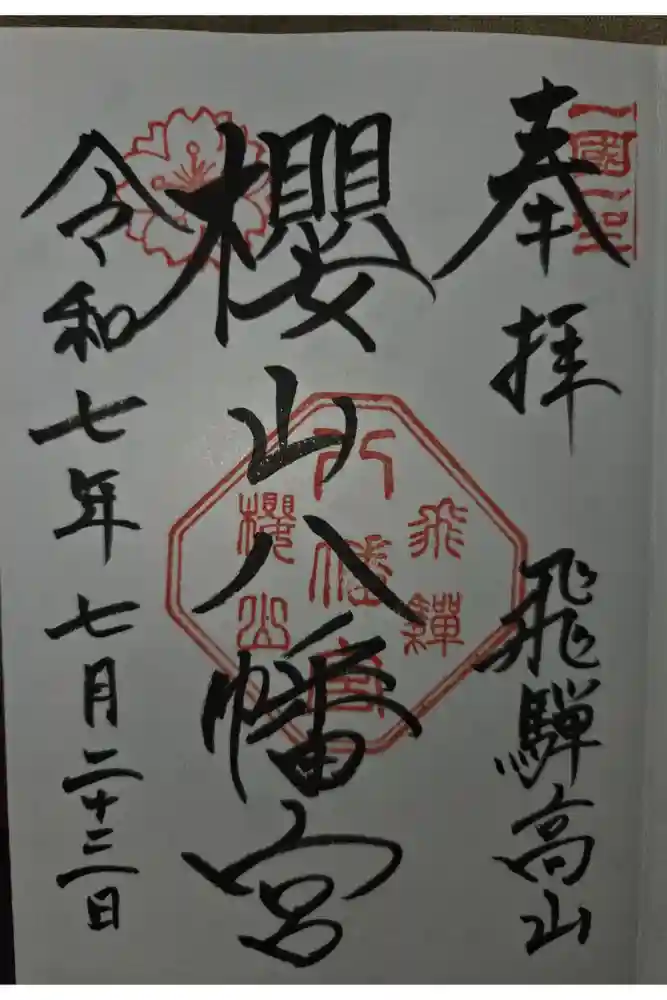 奉拝　飛騨高山
櫻山八幡宮
令和七年七月二十三日
飛驒
八幡宮
櫻山